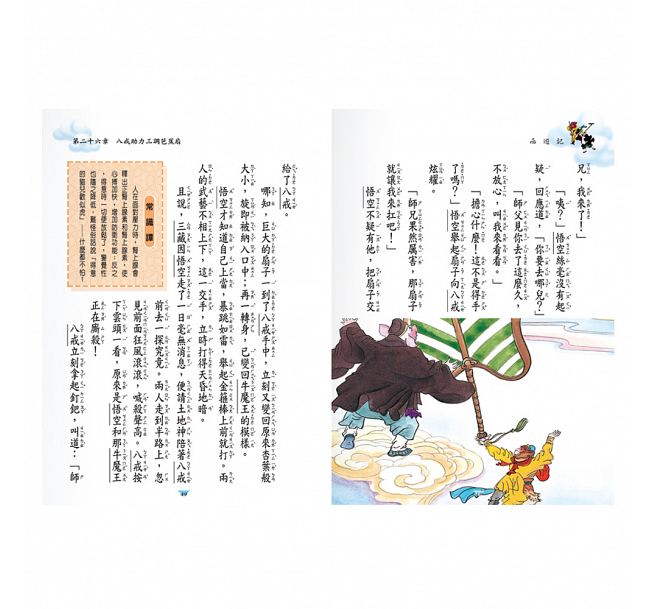 西遊記
兄，我來了！」
「咦？」悟空絲毫沒有起
疑，回應道，「你要去哪兒？」
「師父見你去了這麼久，
不放心，叫我來看看。」
「擔心什麼！這不是得手
了嗎？」悟空舉起扇子向八戒
炫耀。
「師兄果然厲害，那扇子
就讓我來扛吧！」
悟空不疑有他，把扇子交
第二十六章　八戒助力三調芭蕉扇
給了八戒。
哪知，巨大的扇子一到了八戒手中，立刻又變回原來杏葉般
大小，旋即被納入口中；再一轉身，已變回牛魔王的模樣。
悟空才知道自己上當，暴跳如雷，舉起金箍棒上前就打。兩
人的武藝不相上下，這一交手，立時打得天昏地暗。
且說，三藏因悟空走了一日毫無消息，便請土地神陪著八戒
前去一探究竟。兩人走到半路上，忽
見前面狂風滾滾，喊殺聲高。八戒按
下雲頭一看，原來是悟空和那牛魔王
正在廝殺！
八戒立刻拿起釘鈀，叫道：「師
常識譚
人在面對壓力時，腎上腺會
釋出正腎上腺素和腎上腺素，使
心搏加快，增加防衛功能；反之
，得意時一切便放鬆了，警覺性
也隨之降低，難怪俗話說「得意
的貓兒歡似虎」——什麼都不怕！
49